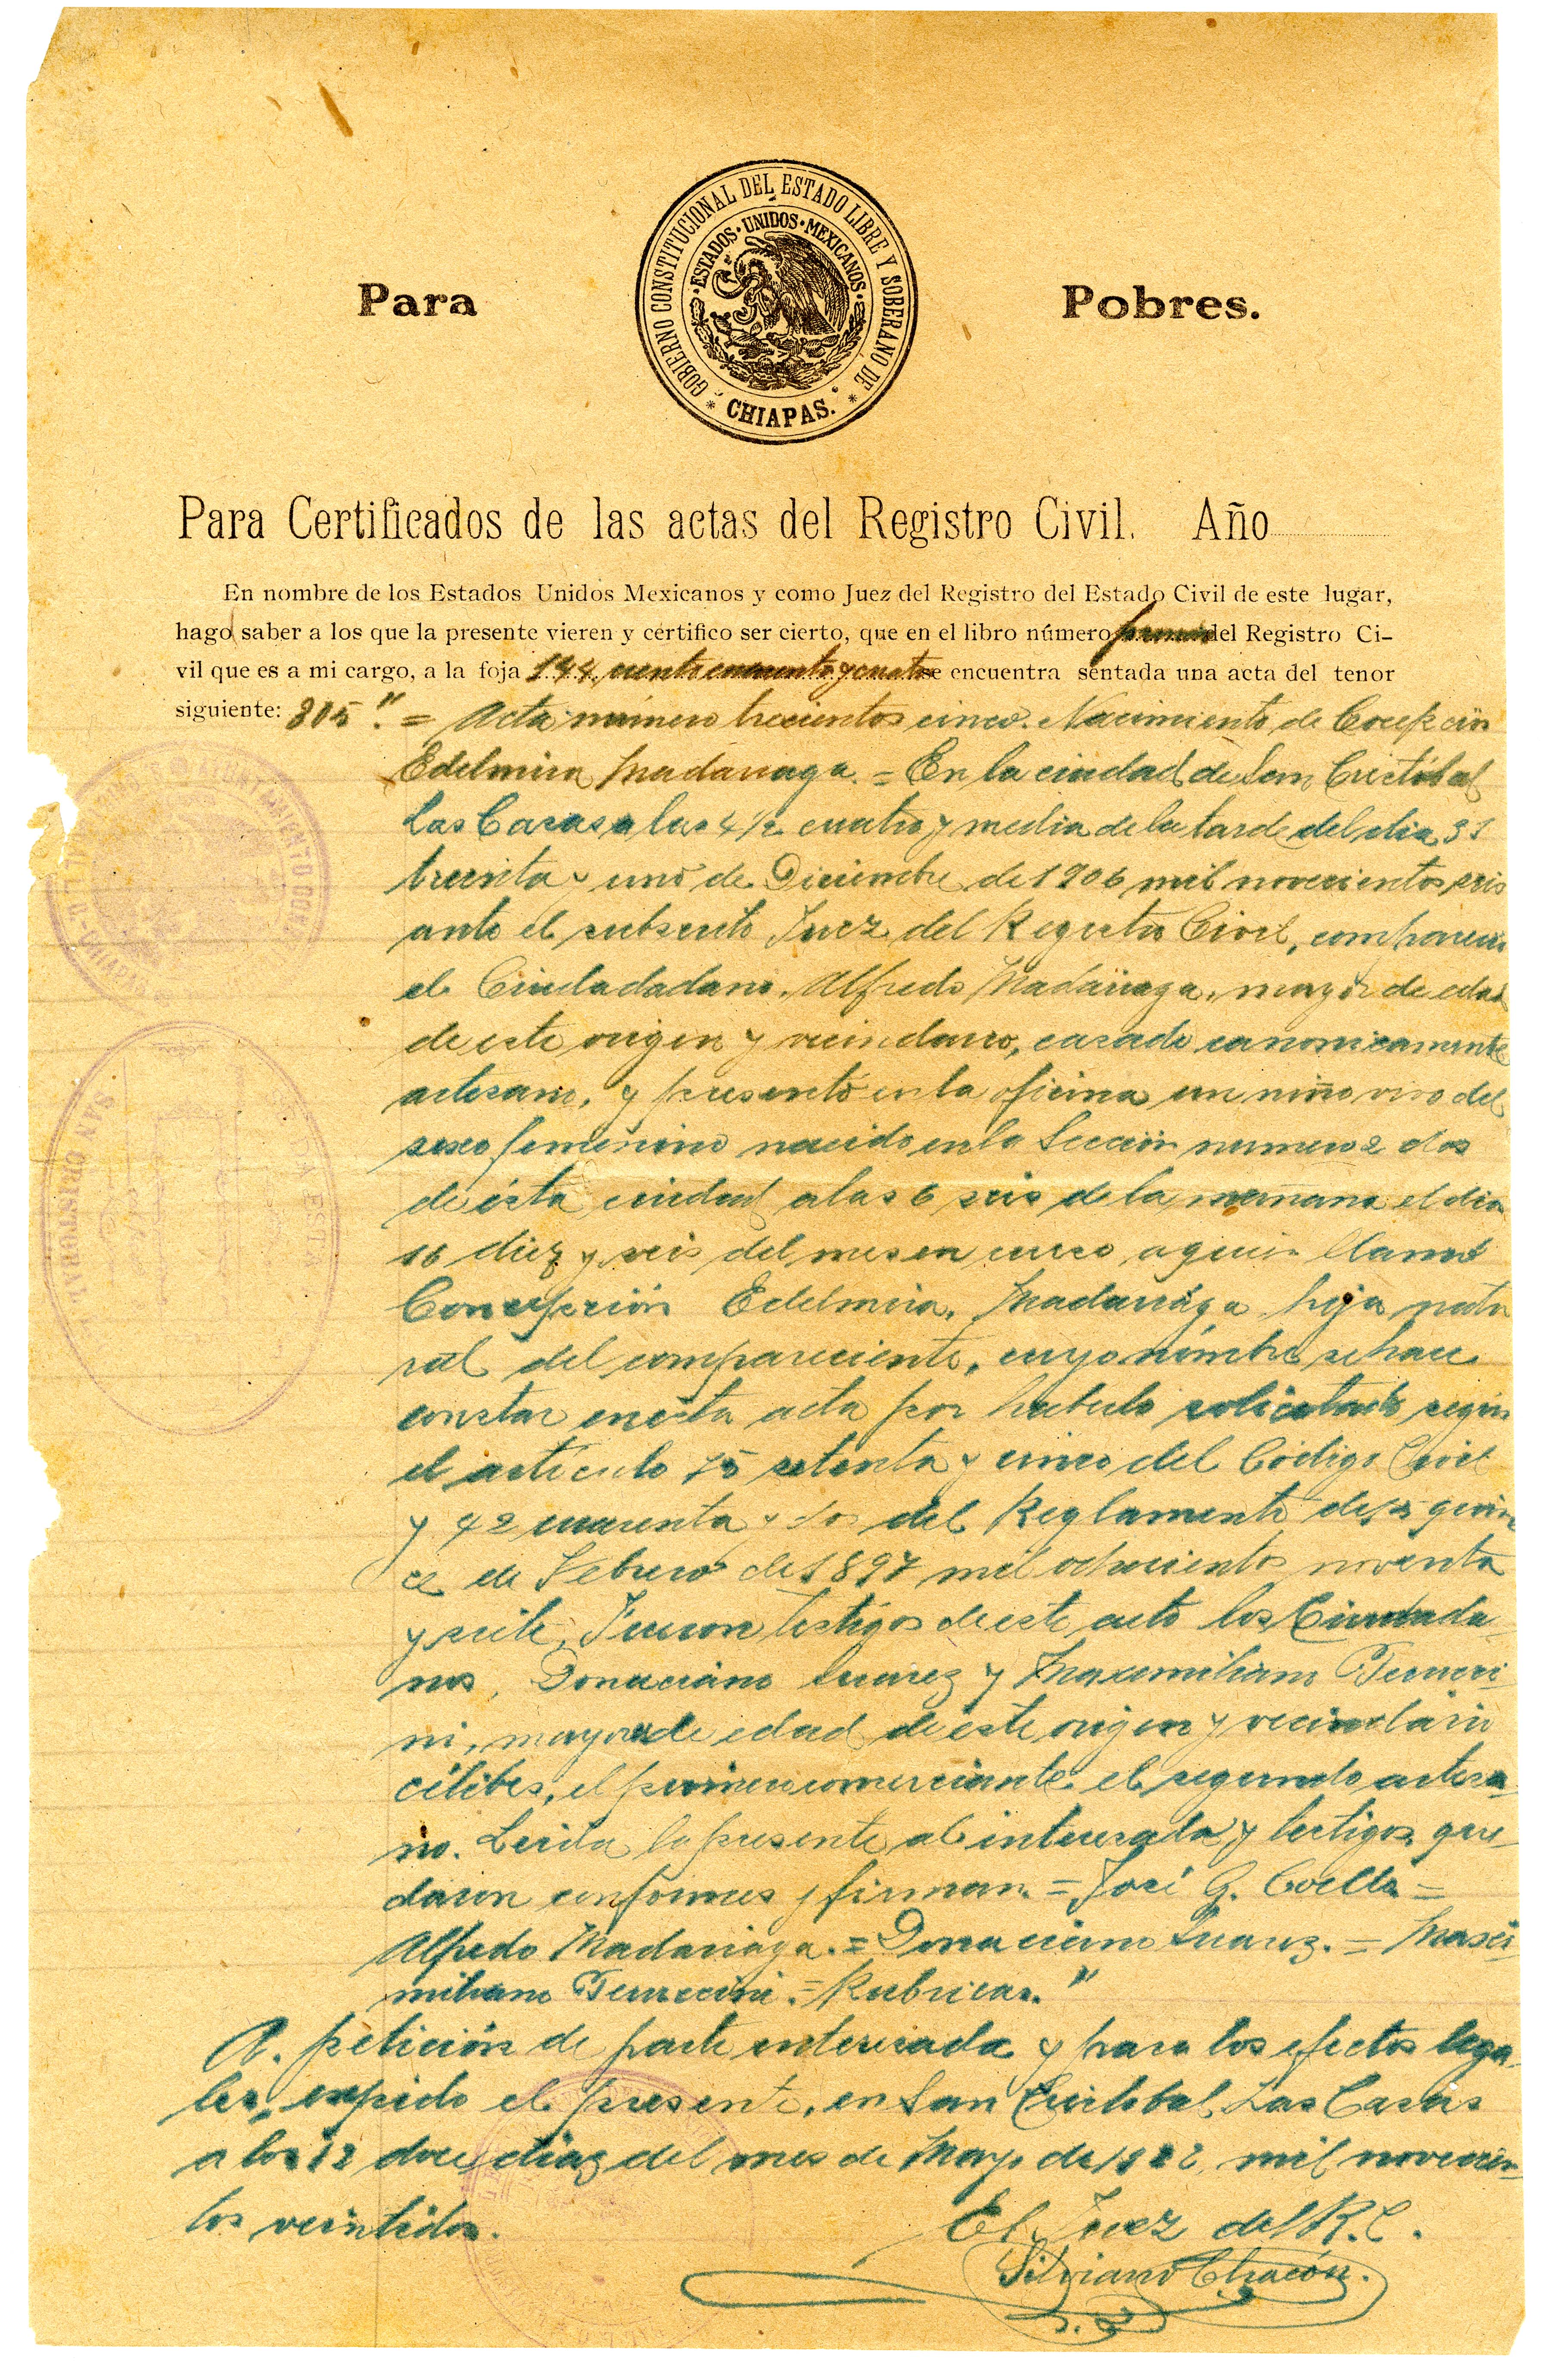 GOBIERNO CONSTITUCIONAL DEL ESTADO LIBRE Y SOBERANO DE
* CHIAPAS. *
ESTADOS·UNIDOS·MEXICANOS
Para Pobres.
Para Certificados de las actas del Registro Civil. Año
En nombre de los Estados Unidos Mexicanos y como Juez del Registro del Estado Civil de este lugar,
hago saber a los que la presente vieren y certifico ser cierto, que en el libro número del Registro Ci-
vil que es a mi cargo, a la foja 144. ciento cuarenta y cuatro se encuentra sentada una acta del tenor
siguiente: 305". = Acta número trecientos cinco. Nacimiento de
Edelmira Madariaga. = En la ciudad de San Cristóbal
Las Casas a las 4½ cuatro y media de la tarde del dia 31
treinta y uno de Diciembre de 1906 mil novecientos seis
ante el subscrito Juez del Registro Civil,
el Ciudadadano. Alfredo Madariaga, mayor de edad
de este origen y vecindario, casado canonicamente
artesano, y presentó en la oficina un niño vivo del
sexo femenino nacido en la Sección numero 2 dos
de ésta ciudad a las 6 seis de la mañana el dia
16 diez y seis del mes en curso a quien llamó
Concepción Edelmira. Madariaga hija natu
ral del compareciente, cuyo nómbre se hace
constar en esta acta por haberlo solicitado según
el artículo 75 setenta y cinco del Código Civil
y 42 cuarenta y dos del Reglamento de 15 quin
ce de Febrero de 1897 mil ochocientos noventa
y siete. Fueron testigos de este acto los Ciudada
nos, Donaciano Suarez y Maximiliano
mayores de edad de este origen y vecindario
célibes, el primero comerciante el segundo artesa-
no. Leida la presente al interesado y testigos que-
daron conformes y firman. = José G. Coello =
Alfredo Madariaga. = Donaciano Suarez. = Maxi
miliano = Rubricas."
A. petición de parte interesada y para los efectos lega-
les, expido el presente, en San Cristobal Las Casas
a los 12 doce diaz del mes de Mayo de 1922 mil novecien-
tos veintidos. El Juez del R. C.
Silviano Chacón.
AYUNTAMIENTO
CHIAPAS
ESTA
SAN CRISTOBAL L.